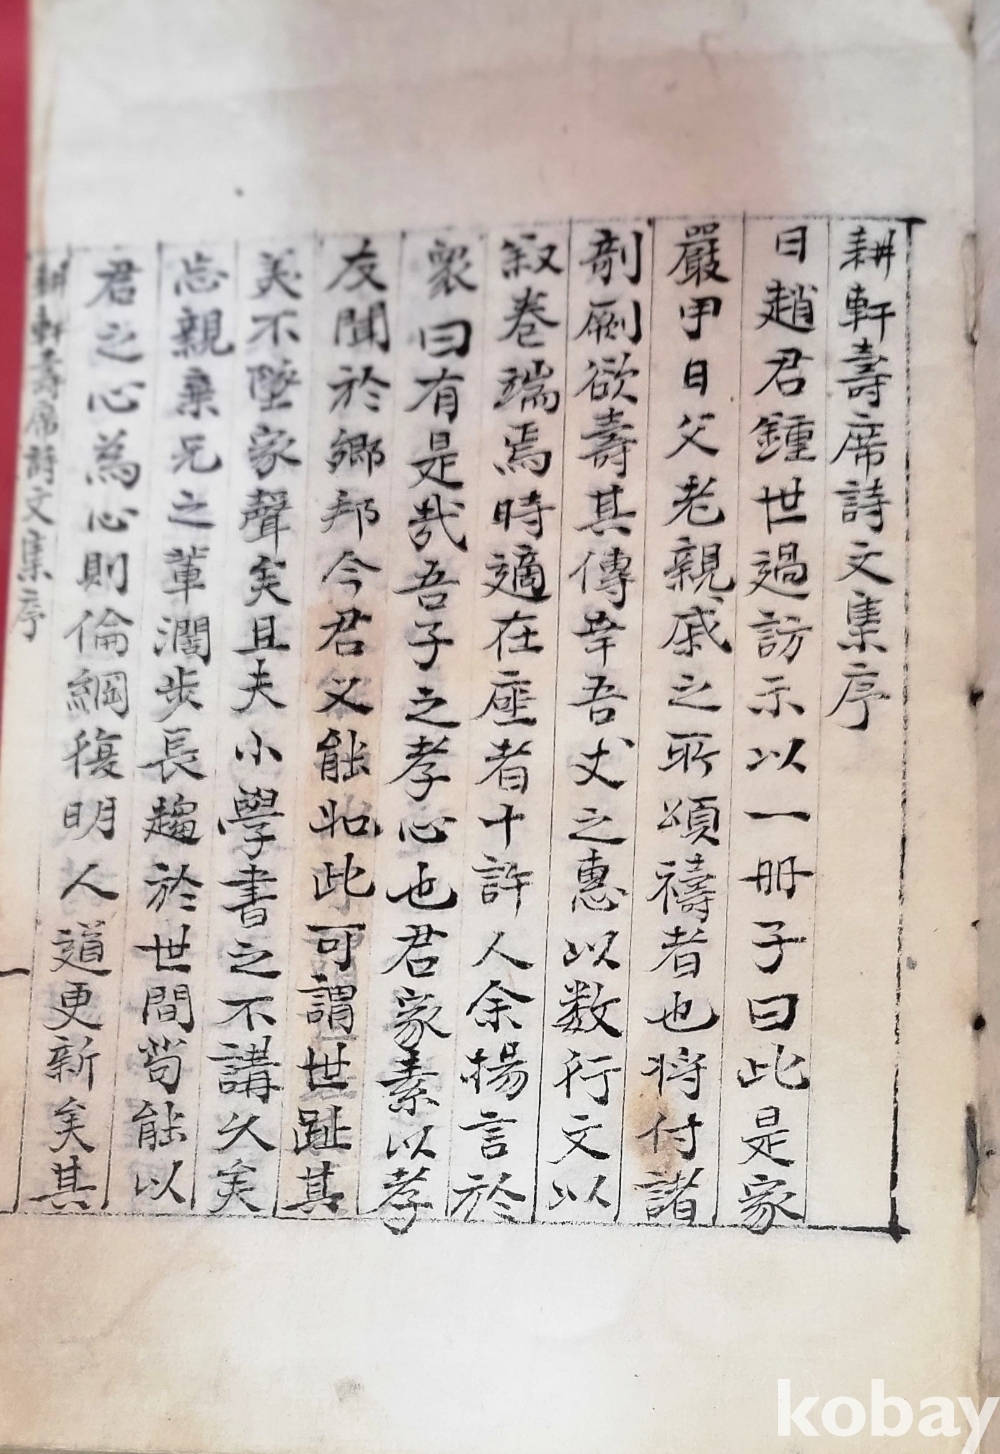 耕軒壽席詩文集序
日趙君鍾世過訪示以一冊子曰此是家
嚴甲日父老親戚之所頌禱者也將付諸
剞劂欲壽其傳幸吾丈之惠以数行文以
叙卷端焉時適在座者十許人余揚言於
衆曰有是哉吾子之孝心也君家素以孝
友聞於鄉邦今君又能如此可謂世趾其
美不墜家聲矣且夫小學書之不講久矣
忘親棄兄之輩濶步長趨於世間苟能以
君之心為心則倫綱復明人道更新矣其
耕軒壽席詩文集序
一
kobay